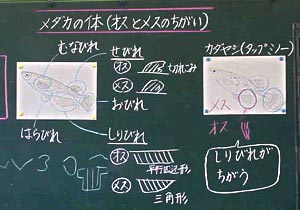 メダカの体(オスとメスのちがい)
むなびれ
せびれ
オス
切れこみ
メス
おびれ
はらびれ
しりびれ
オス
平行四辺形
メス
三角形
カダヤシ(タップミノー)
メス
オス
しりびれが
ちがう